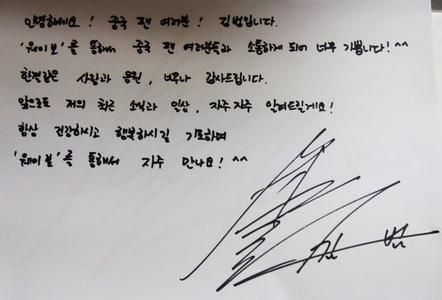 안녕하세요! 중국 팬 여러분! 김범입니다.
'웨이보'를 통해서 중국 팬 여러분들과 소통하게 되어 너무 기쁩니다! ^^
한결같은 사랑과 응원, 너무나 감사드립니다.
앞으로도 저의 최근 소식과 인상, 자주 자주 알려드릴게요!
항상 건강하시고 행복하시길 기도하며
'웨이보'를 통해서 자주 만나요! ^^
김 범